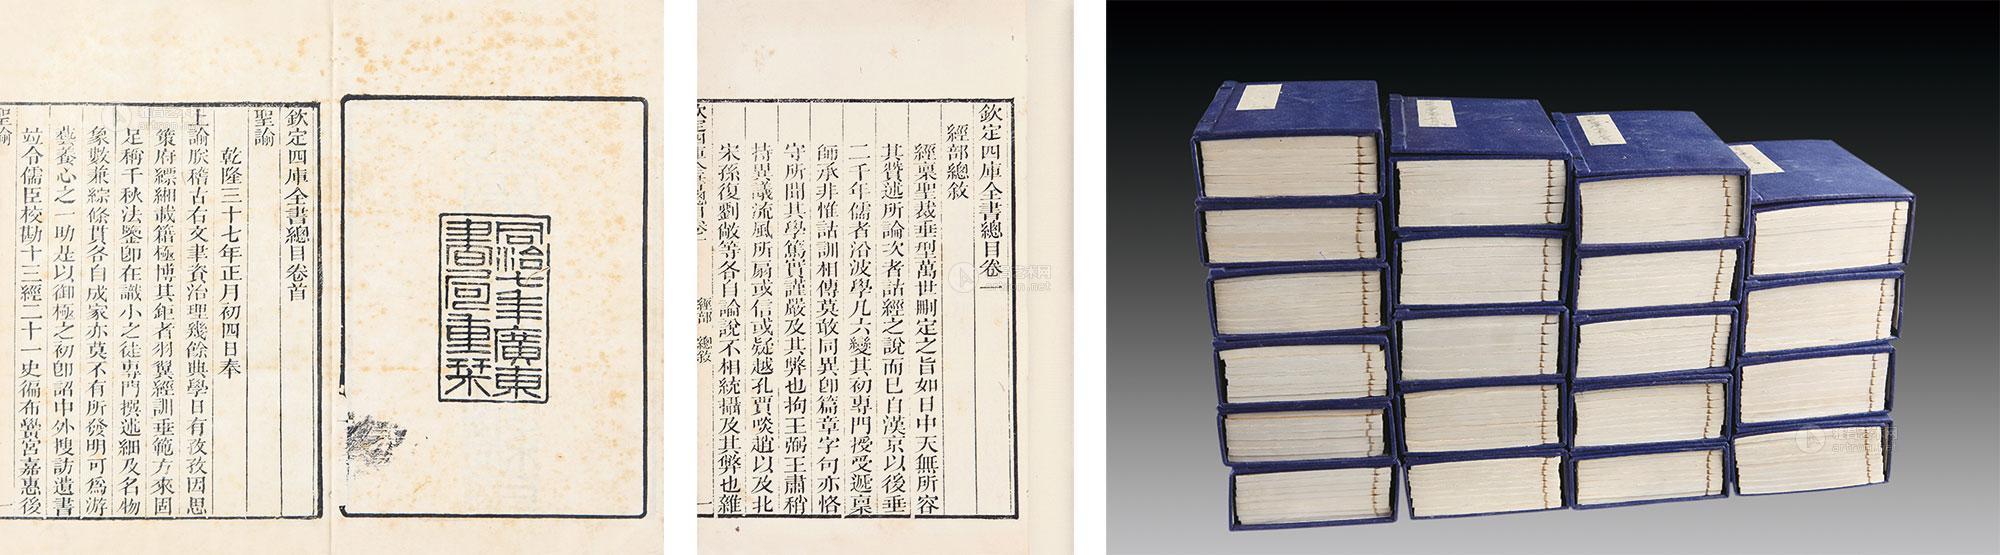 同治七年廣東
書局重栞
欽定四庫全書總目卷首
聖諭
乾隆三十七年正月初四日奉
上諭朕稽古右文聿資治理幾餘典學日有孜孜因思
策府縹緗載籍極博其鉅者羽翼經訓垂範方來固
足稱千秋法鑒卽在識小之徒專門撰述細及名物
象數兼綜條貫各自成家亦莫不有所發明可爲游
藝養心之一助是以御極之初卽詔中外搜訪遺書
竝令儒臣校勘十三經二十一史徧布黌宮嘉惠後
聖諭
一
欽定四庫全書總目卷一
經部總敘
經稟聖裁垂型萬世刪定之旨如日中天無所容
其贊述所論次者詁經之說而已自漢京以後垂
二千年儒者沿波學凡六變其初專門授受遞稟
師承非惟詁訓相傳莫敢同異卽篇章字句亦恪
守所聞其學篤實謹嚴及其弊也拘王弼王肅稍
持異議流風所扇或信或疑越孔賈啖趙以及北
宋孫復劉敞等各自論說不相統攝及其弊也雜
欽定四庫全書總目卷一
經部 總敘
一
雅昌艺术网
artron.net